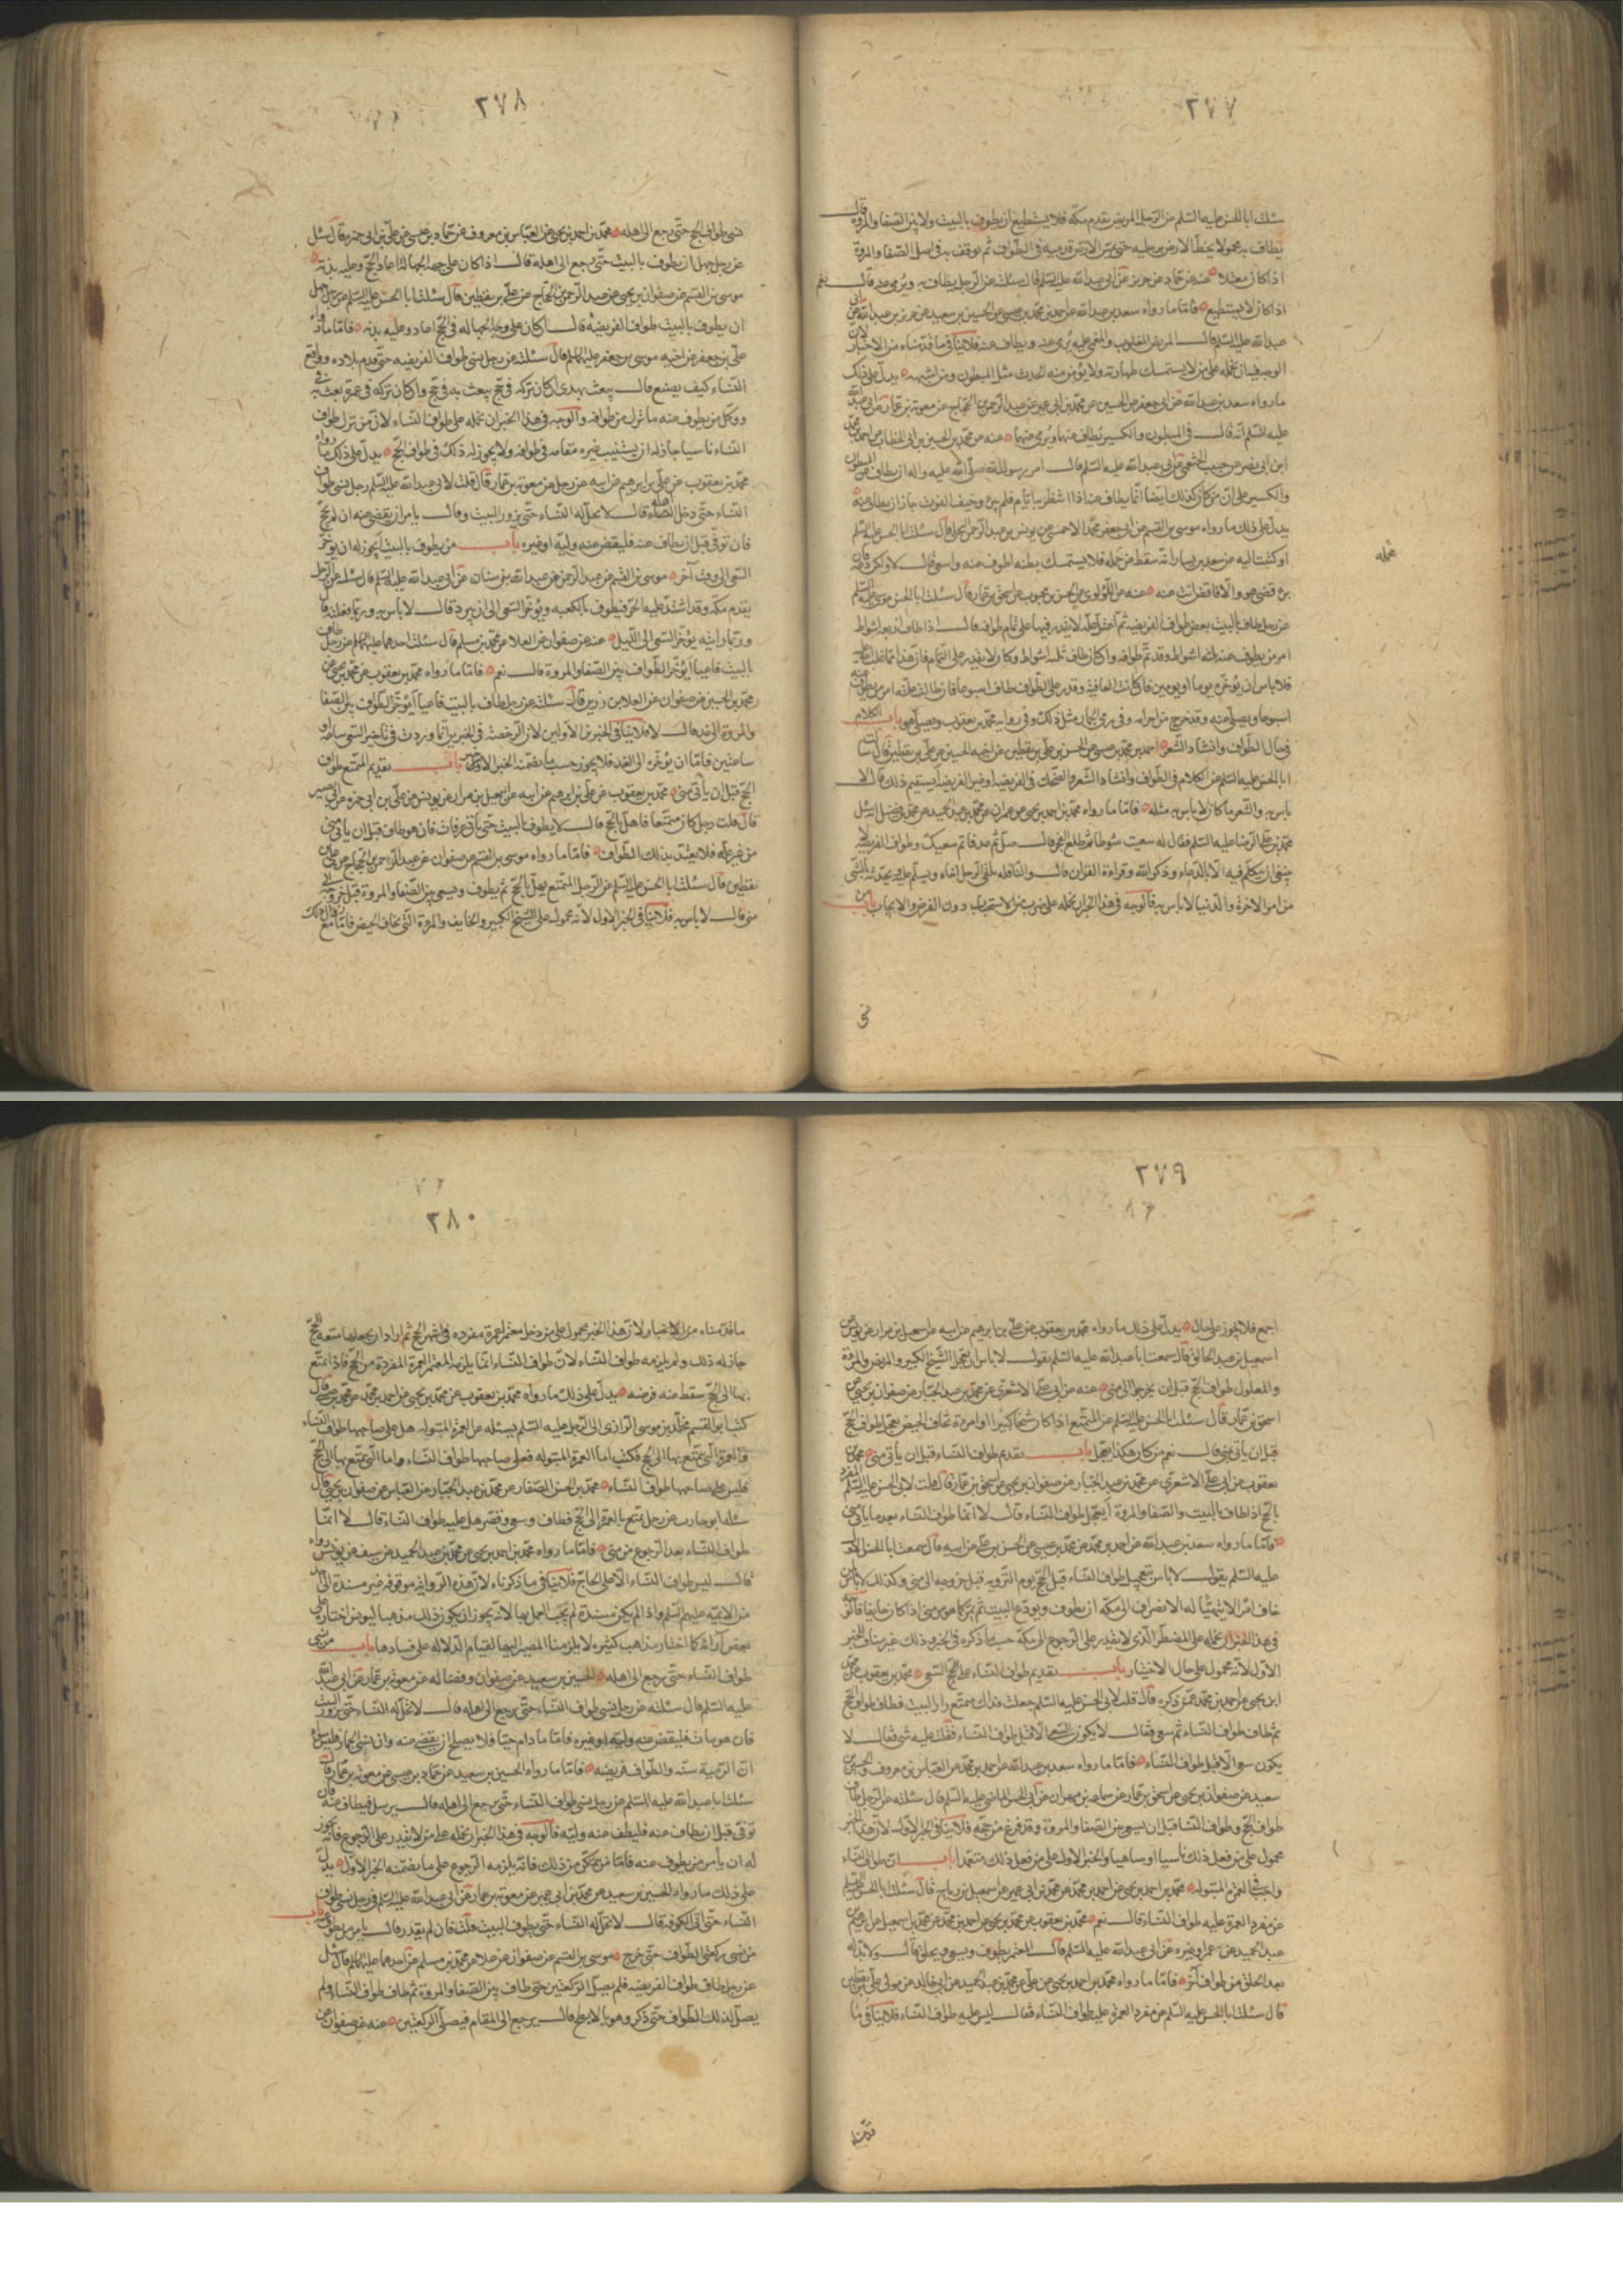 ٢٧٧
سئلت ابا الحسن عليه السّلم عن الرّجل المريض يقدم مكّة فلا يستطيع ان يطوف بالبيت ولا بين الصّفا والمروة قال
يطاف به محمولا يخطّ الارض برجليه حتى تمسّ الارض قدميه في الطّواف ثم يوقف به في اصل الصّفا والمروة
اذا كان معتلا عنه عن حمّاد عن حريز عن ابي عبد الله عليه السّلم قال سئلته عن الرّجل يطاف به ويرمى عنه قال نعم
اذا كان لا يستطيع فامّا ما رواه سعد بن عبد الله عن احمد بن محمّد بن عيسى عن الحسين بن سعيد عن حريز بن عبد الله عن ابي
عبد الله عليه السّلم قال المريض المغلوب والمغمى عليه يُرمى عنه ويطاف عنه فلا ينافي ما قدّمناه من الاخبار لان
الوجه فيه ان نحمله على من لا يستمسك طهارته ولا يؤمن منه الحدث مثل المبطون ومن اشبهه يدلّ على ذلك
ما رواه سعد بن عبد الله عن ابي جعفر عن الحسين عن محمّد بن ابي عمير عن عبد الرّحمن بن الحجّاج عن معوية بن عمّار عن ابي عبد الله
عليه السّلم انّه قال في المبطون والكسير يُطاف عنهما ويُرمى عنهما عنه عن محمّد بن الحسين بن ابي الخطّاب عن احمد بن محمّد
ابن ابي نصر عن حبيب الخثعمي عن ابي عبد الله عليه السّلم قال امر رسول الله صلّى الله عليه واله ان يطاف عن المبطون
والكسير على انّ من كان كذلك ايضا انّما يطاف عنه اذا انتظر به ايّام فلم يبرئ وخيف الفوت جاز ان يطاف عنه
يدلّ على ذلك ما رواه موسى بن القسم عن ابي جعفر محمّد الاحمسي عن يونس بن عبد الرّحمن البجلي قال سئلت ابا الحسن عليه السّلم
او كتبت اليه عن سعيد بن يسار انّه سقط من جمله فلا يستمسك بطنه اطوف عنه واسعى قال لا ولكن دعه فان
برئ قضى هو والّا فاقض انت عنه عنه عن اللّؤلؤي عن الحسن بن محبوب عن اسحق بن عمّار قال سئلت ابا الحسن موسى عليه السّلم
عن رجل طاف بالبيت بعض طواف الفريضه ثم اعتلّ علّة لا يقدر فيها على تمام طوافه قال اذا طاف اربعة اشواط
امر من يطوف عنه ثلثة اشواط وقد تمّ طوافه وان كان طاف ثلثة اشواط وكان لا يقدر على التمام فان هذا ممّا غلب الله عليه
فلا باس ان يؤخّره يوما او يومين فان كانت العافية وقدر على الطّواف طاف اسبوعا فان طالت علّته امر من يطوف عنه
اسبوعا ويصلّي عنه وقد خرج من احرامه وفي رمي الجمار مثل ذلك وفي رواية محمّد بن يعقوب ويصلّي هو باب الكلام
في حال الطّواف وانشاد الشّعر احمد بن محمّد بن عيسى عن الحسن بن علي بن يقطين عن اخيه الحسين عن علي بن يقطين قال سئلت
ابا الحسن عليه السّلم عن الكلام في الطّواف وانشاد الشّعر والضّحك في الفريضه او غير الفريضه ايستقيم ذلك قال لا
باس به والشّعر ما كان لا باس به مثله فامّا ما رواه محمّد بن احمد بن يحيى عن عمران عن محمّد بن عبد الحميد عن محمّد بن فضيل انّه سئل
محمّد بن علي الرّضا عليه السّلم فقال له سعيت شوطا ثم طلع الفجر قال صلّ ثم عد فاتم سعيك وطواف الفريضه لا
ينبغي ان يتكلّم فيه الّا بالدّعاء وذكر الله وقراءة القران قال والنّافله يلقى الرّجل اخاه ويسلّم عليه ويحدّثه بالشّيء
من امر الاخرة والدّنيا لا باس به فالوجه في هذا الخبر ان نحمله على ضرب من الاستحباب دون الفرض والايجاب باب من
نحمله
نسي
٢٧٨
نسي طواف الحجّ حتّى رجع الى اهله محمّد بن احمد بن يحيى عن العبّاس بن معروف عن حمّاد بن عيسى عن علي بن ابي حمزه قال سئل
عن رجل جهل ان يطوف بالبيت حتّى يرجع الى اهله قال اذا كان على جهة الجهالة اعاد الحجّ وعليه بدنه
موسى بن القسم عن صفوان بن يحيى عن عبد الرّحمن بن الحجّاج عن علي بن يقطين قال سئلت ابا الحسن عليه السّلم عن رجل جهل
ان يطوف بالبيت طواف الفريضه قال ان كان على وجه الجهالة في الحجّ اعاد وعليه بدنه فامّا ما رواه
علي بن جعفر عن اخيه موسى بن جعفر عليهما السّلم قال سئلته عن رجل نسي طواف الفريضه حتى قدم بلاده وواقع
النّساء كيف يصنع قال يبعث بهدي ان كان تركه في حجّ يبعث به في حجّ وان كان تركه في عمرة بعث به في
ووكّل من يطوف عنه ما ترك من طوافه والوجه في هذا الخبر ان نحمله على طواف النّساء لانّ من ترك طواف
النّساء ناسيا جاز له ان يستنيب غيره مقامه في طوافه ولا يجوز له ذلك في طواف الحجّ يدلّ على ذلك ما رواه
محمّد بن يعقوب عن علي بن ابرهيم عن ابيه عن رجل عن معوية بن عمّار قال قلت لابي عبد الله عليه السّلم رجل نسي طواف
النّساء حتّى دخل اهله قال لا تحلّ له النّساء حتّى يزور البيت وقال يامر ان يقضى عنه ان لم يحجّ
فان توفّي قبل ان يطاف عنه فليقض عنه وليّه او غيره باب من يطوف بالبيت ايجوز له ان يؤخّر
السّعي الى وقت آخر موسى بن القسم عن عبد الرّحمن عن عبد الله بن سنان عن ابي عبد الله عليه السّلم قال سئلته عن الرّجل
يقدم مكّة وقد اشتدّ عليه الحرّ فيطوف بالكعبه ويؤخّر السّعي الى ان يبرد قال لا باس به وربما فعلته قال
وربما رايته يؤخّر السّعي الى اللّيل عنه عن صفوان عن العلا عن محمّد بن مسلم قال سئلت احدهما عليهما السّلم عن رجل طاف
بالبيت فاعيا ايؤخّر الطّواف بين الصّفا والمروة قال نعم فامّا ما رواه محمّد بن يعقوب عن محمّد بن يحيى عن
محمّد بن الحسين عن صفوان عن العلا بن رزين قال سئلته عن رجل طاف بالبيت فاعيا ايؤخّر الطّواف بين الصّفا
والمروة الى غد قال لا فلا ينافي الخبرين الاولين لان الرّخصة في الخبرين انّما وردت في تاخير السّعي ساعة او
ساعتين فامّا ان يؤخّره الى الغد فلا يجوز حسب ما يضمّنه الخبر الاوّل باب تقديم المتمتّع طواف
الحجّ قبل ان يأتي منى محمّد بن يعقوب عن علي بن ابرهيم عن ابيه عن اسمعيل بن مرار عن يونس عن علي بن ابي حمزه عن ابي بصير
قال قلت رجل كان متمتّعا فاهلّ بالحجّ قال لا يطوف بالبيت حتّى يأتي عرفات فان هو طاف قبل ان يأتي منى
من غير علّه فلا يعتدّ بذلك الطّواف فامّا ما رواه موسى بن القسم عن صفوان عن عبد الرّحمن بن الحجّاج عن علي بن
يقطين قال سئلت ابا الحسن عليه السّلم عن الرّجل المتمتّع يهلّ بالحجّ ثم يطوف ويسعى بين الصّفا والمروة قبل خروجه الى
منى قال لا باس به فلا ينافي الخبر الاول لانّه محمول على الشّيخ الكبير والخايف والمرأة الّتي تخاف الحيض فامّا مع زوال ذلك
٢٧٩
اجمع فلا يجوز على حال يدلّ على ذلك ما رواه محمّد بن يعقوب عن علي بن ابرهيم عن ابيه عن اسمعيل بن مرار عن يونس عن
اسمعيل بن عبد الخالق قال سمعت ابا عبد الله عليه السّلم يقول لا باس ان يعجّل الشّيخ الكبير والمريض والمرأة
والمعلول طواف الحجّ قبل ان يخرجوا الى منى عنه عن ابي علي الاشعري عن محمّد بن عبد الجبّار عن صفوان بن يحيى عن
اسحق بن عمّار قال سئلت ابا الحسن عليه السّلم عن المتمتّع اذا كان شيخا كبيرا او امرءة تخاف الحيض يعجّل طواف الحجّ
قبل ان يأتي منى قال نعم من كان هكذا يعجّل باب تقديم طواف النّساء قبل ان يأتي منى محمّد بن
يعقوب عن ابي علي الاشعري عن محمّد بن عبد الجبّار عن صفوان بن يحيى عن اسحق بن عمّار قال قلت لابي الحسن عليه السّلم المفرد
بالحجّ اذا طاف بالبيت والصّفا والمروة أيعجّل طواف النّساء قال لا انّما طواف النّساء بعد ما يأتي منى
فامّا ما رواه سعد بن عبد الله عن احمد بن محمّد عن محمّد بن عيسى عن الحسن بن علي عن ابيه قال سمعت ابا الحسن الاوّل
عليه السّلم يقول لا باس بتعجيل طواف النّساء قبل الحجّ يوم التّرويه قبل خروجه الى منى وكذلك لا باس لمن
خاف امرا لا يتهيّأ له الانصراف الى مكّه ان يطوف ويودّع البيت ثم يمرّ كما هو من منى اذا كان خايفا فالوجه
في هذا الخبر ان نحمله على المضطرّ الّذي لا يقدر على الرّجوع الى مكّة حسب ما ذكره في الخبر وذلك غير مناف للخبر
الاوّل لانّه محمول على حال الاختيار باب تقديم طواف النّساء على السّعي محمّد بن يعقوب عن محمّد
ابن يحيى عن احمد بن محمّد عمّن ذكره قال قلت لابي الحسن عليه السّلم جعلت فداك متمتّع زار البيت فطاف طواف الحجّ
ثم طاف طواف النّساء ثم سعى فقال لا يكون السّعي الّا قبل طواف النّساء فقلت عليه شيء قال لا
يكون سعي الّا قبل طواف النّساء فامّا ما رواه سعد بن عبد الله عن احمد بن محمّد عن العبّاس بن معروف والحسين بن
سعيد عن صفوان بن يحيى عن اسحق بن عمّار عن سماعه بن مهران عن ابي الحسن الماضي عليه السّلم قال سئلته عن الرّجل طاف
طواف الحجّ وطواف النّساء قبل ان يسعى بين الصّفا والمروة وقد فرغ من حجّه فلا ينافي الخبر الاول لان هذا الخبر
محمول على من فعل ذلك ناسيا او ساهيا والخبر الاول على من فعل ذلك متعمّدا باب انّ طواف النّساء
واجب في العمرة المبتوله محمّد بن احمد بن يحيى عن احمد بن محمّد عن محمّد بن ابي عمير عن اسمعيل بن رباح قال سئلت ابا الحسن عليه السّلم
عن مفرد العمرة عليه طواف النّساء قال نعم محمّد بن يعقوب عن محمّد بن يحيى عن احمد بن محمّد عن محمّد بن اسمعيل عن ابرهيم بن
عبد الحميد عن عمر او غيره عن ابي عبد الله عليه السّلم قال المعتمر يطوف ويسعى ويحلق قال ولا بدّ له
بعد الحلق من طواف آخر فامّا ما رواه محمّد بن احمد بن يحيى عن علي عن محمّد بن عبد الحميد عن ابي خالد عن مولى علي بن يقطين
قال سئلت ابا الحسن عليه السّلم عن مفرد العمرة عليه طواف النّساء فقال ليس عليه طواف النّساء فلا ينافي ما
قدّمناه
٢٨٠
ما قدّمناه من الاخبار لان هذا الخبر محمول على من دخل معتمرا عمرة مفرده في اشهر الحجّ ثم اراد ان يجعلها متعه للحجّ
جاز له ذلك ولم يلزمه طواف النّساء لانّ طواف النّساء انّما يلزمه المعتمر العمرة المفردة من الحجّ فاذا تمتّع
بها الى الحجّ سقط عنه فرضه يدلّ على ذلك ما رواه محمّد بن يعقوب عن محمّد بن يحيى عن احمد بن محمّد عن محمّد بن عيسى قال
كتب ابو القسم مخلّد بن موسى الرّازي الى الرّجل عليه السّلم يسئله عن العمرة المبتوله هل على صاحبها طواف النّساء
والعمرة الّتي يتمتّع بها الى الحجّ فكتب امّا العمرة المبتوله فعلى صاحبها طواف النّساء وامّا الّتي يتمتّع بها الى الحجّ
فليس على صاحبها طواف النّساء محمّد بن الحسن الصّفّار عن محمّد بن عبد الجبّار عن العبّاس عن صفوان بن يحيى قال
سئله ابو حارث عن رجل تمتّع بالعمرة الى الحجّ فطاف وسعى وقصّر هل عليه طواف النّساء قال لا انّما
طواف النّساء بعد الرّجوع من منى فامّا ما رواه محمّد بن احمد بن يحيى عن محمّد بن عبد الحميد عن سيف عن يونس رواه
قال ليس طواف النّساء الّا على الحاج فلا ينافي ما ذكرناه لان هذه الرّواية موقوفه غير مسندة الى احد
من الايمّه عليهم السّلم واذا لم يكن مسندة لم يجب العمل بها لانّه يجوز ان يكون ذلك مذهبا ليونس اختاره على
بعض آرائه كما اختار مذاهب كثيره لا يلزمنا المصير اليها لقيام الدّلالة على فسادها باب من نسي
طواف النّساء حتّى رجع الى اهله الحسين بن سعيد عن صفوان وفضاله عن معوية بن عمّار عن ابي عبد الله
عليه السّلم قال سئلته عن رجل نسي طواف النّساء حتّى يرجع الى اهله قال لا تحلّ له النّساء حتّى يزور البيت
فان هو مات فليقض عنه وليّه او غيره فامّا ما دام حيّا فلا يصلح ان يقضى عنه وان نسي الجمار فليسا سواء
انّ الرّمي سنّه والطّواف فريضه فامّا ما رواه الحسين بن سعيد عن حمّاد بن عيسى عن معوية بن عمّار قال
سئلت ابا عبد الله عليه السّلم عن رجل نسي طواف النّساء حتّى يرجع الى اهله قال يرسل فيطاف عنه فان
توفّي قبل ان يطاف عنه فليطف عنه وليّه فالوجه في هذا الخبر ان نحمله على من لا يقدر على الرّجوع فانّه يجوز
له ان يأمر من يطوف عنه فامّا من تمكّن من ذلك فانّه يلزمه الرّجوع على ما يضمّنه الخبر الاوّل يدلّ
على ذلك ما رواه الحسين بن سعيد عن محمّد بن ابي عمير عن معوية بن عمّار عن ابي عبد الله عليه السّلم في رجل نسي طواف
النّساء حتّى اتى الكوفة قال لا تحلّ له النّساء حتّى يطوف بالبيت قلت فان لم يقدر قال يامر من يطوف عنه باب
من نسي ركعتي الطّواف حتى خرج موسى بن القسم عن صفوان عن علا عن محمّد بن مسلم عن احدهما عليهما السّلم قال سئل
عن رجل طاف طواف الفريضه فلم يصلّ الرّكعتين حتى طاف بين الصّفا والمروة ثم طاف طواف النّساء فلم
يصلّ لذلك الطّواف حتّى ذكر وهو بالابطح قال يرجع الى المقام فيصلّي الرّكعتين عنه عن صفوان عن